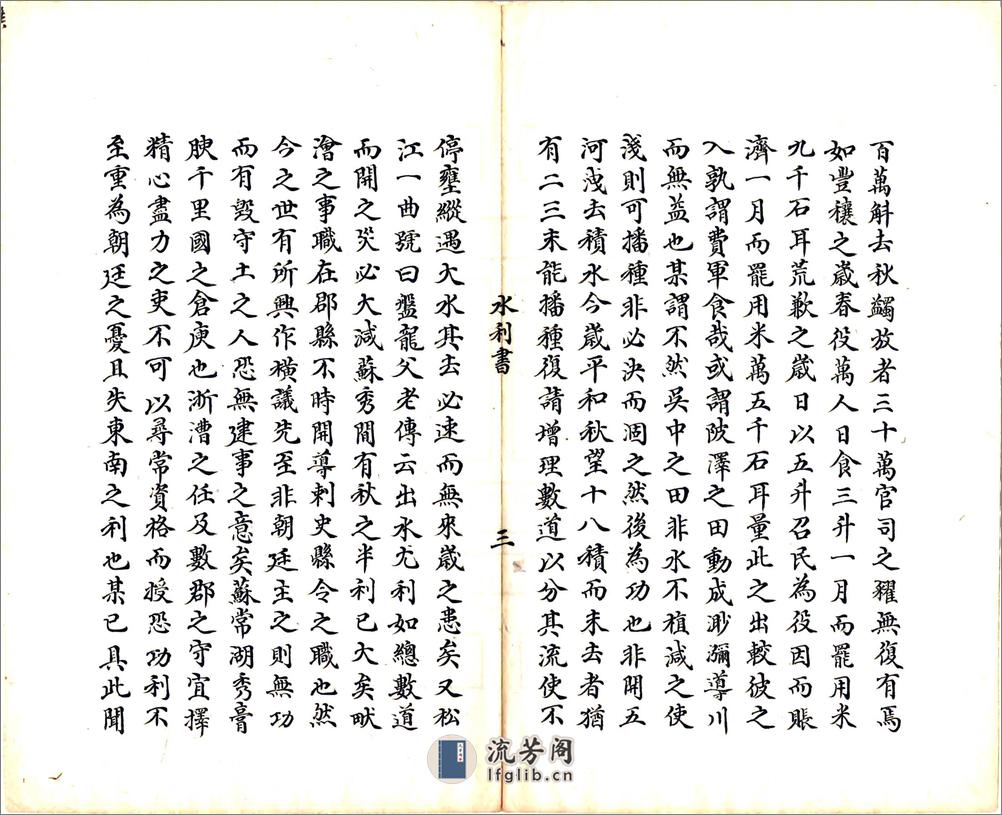 百萬斛去秋蠲放者三十萬官司之糴無復有焉
如豐穰之歲春役萬人日食三升一月而罷用米
九千石耳荒歉之歲日以五升召民為役因而賑
濟一月而罷用米萬五千石耳量此之出較彼之
入孰謂費軍食哉或謂陂澤之田動成渺瀰導川
而無益也某謂不然吳中之田非水不植減之使
淺則可播種非必決而涸之然後為功也非開五
河洩去積水今歲平和秋望十八積而未去者猶
有二三未能播種復請增理數道以分其流使不
水利書
三
停壅縱遇大水其去必速而無來歲之患矣又松
江一曲號曰盤龍父老傳云出水尤利如總數道
而開之災必大減蘇秀間有秋之半利已大矣畎
澮之事職在郡縣不時開導刺史縣令之職也然
今之世有所興作橫議先至非朝廷主之則無功
而有毀守土之人恐無建事之意矣蘇常湖秀膏
腴千里國之倉庾也浙漕之任及數郡之守宜擇
精心盡力之吏不可以尋常資格而授恐功利不
至重為朝廷之憂且失東南之利也某已具此聞
流芳阁
lfglib.cn